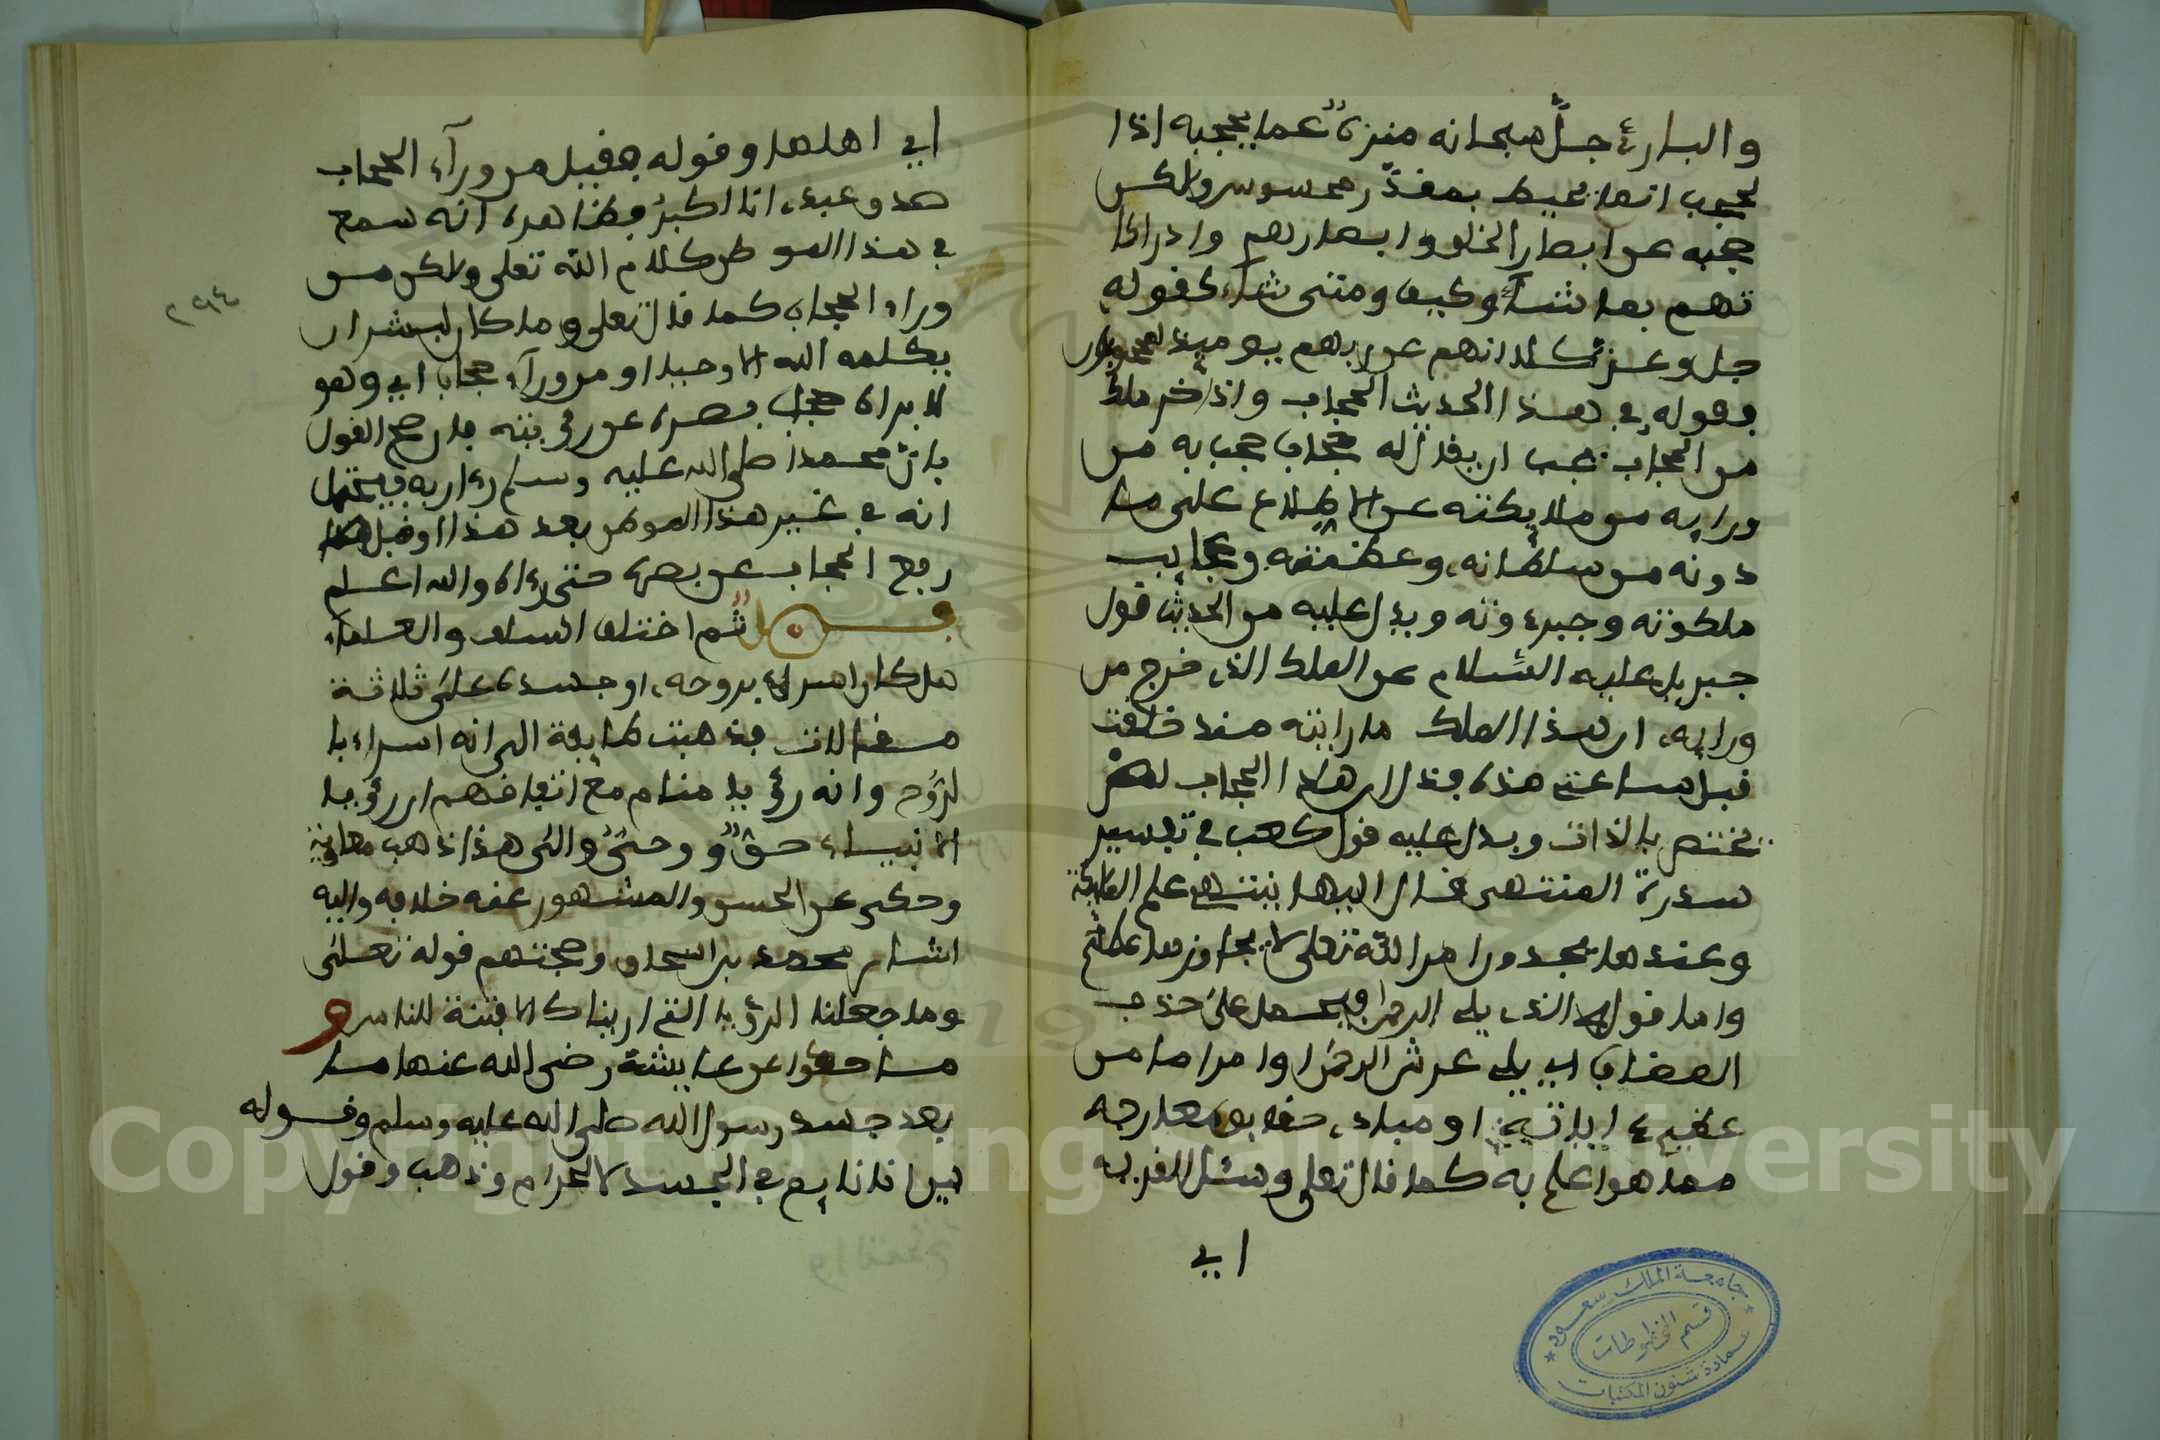 والبارئ جلّ سبحانه منزهٌ عما يحجبه اذا
لحجب انما تحيط بمقدّر محسوس ولاكن
حجبه عن ابصار الخلق وابصايرهم وادراكا
تهم بما شآء وكيف ومتى شآء كقوله
جل وعز كلا انهم عن ربهم يوميذ لمحجوبون
فقوله في هذا الحديث الحجاب واذا خرج ملك
من الحجاب يجب ان يقال انه حجاب حجب به من
ورايه من ملايكته عن الاطلاع على ما
دونه من سلطانه وعظمته وعجايب
ملكوته وجبروته ويدل عليه من الحديث قول
جبريل عليه السّلام عن الملك الذي خرج من
ورايه ان هذا الملك ما رايته منذ خلقت
قبل ساعتي هذه فدل ان هذا الحجاب لم
يختص بالذات ويدل عليه قول كعب في تفسير
سدرة المنتهى قال اليها ينتهي علم الملايكة
وعندها يجدون امر الله تعلى لا يجاوزها علمهم
واما قوله الذي يلي الرحمن فيحمل على حذف
المضاف اي يلي عرش الرحمن او امرا ما من
عظيم ءاياته او مبادي حقايق معارفه
مما هو اعلم به كما قال تعلى وسئل القرية
اي
اي اهلها وقوله فقيل من ورآء الحجاب
صدق عبدي انا اكبر فظاهره انه سمع
في هذا الموطن كلام الله تعلى ولاكن من
وراء الحجاب كما قال تعلى وما كان لبشر ان
يكلمه الله الا وحيا او من ورآء حجاب اي وهو
لا يراه حجب بصره عن رؤيته فان صح القول
بان محمدا صلى الله عليه وسلم رءا ربه فيحتمل
انه في غير هذا الموطن بعد هذا او قبله
رفع الحجاب عن بصره حتى رءاه والله اعلم
فصل ثم اختلف السلف والعلمآء
هل كان اسراؤه بروحه او جسده على ثلاثة
مقالات فذهبت طايفة الى انه اسراء با
لرّوح وانه رؤيا منام مع اتفاقهم ان رؤيا
الانبياء حقٌّ ووحيٌ والى هذا ذهب معاوية
وحكى عن الحسن والمشهور عنه خلافه واليه
اشار محمد بن اسحاق وحجتهم قوله تعلى
وما جعلنا الرؤيا التي اريناك الا فتنة للناس و
ما حكوا عن عايشة رضي الله عنها ما
فقد جسد رسول الله صلى الله عليه وسلم وقوله
بين انا نايم في المسجد الحرام وذهب وقول
٢٩٤
جامعة الملك سعود
قسم المخطوطات
عمادة شئون المكتبات
Copyright © King Saud University